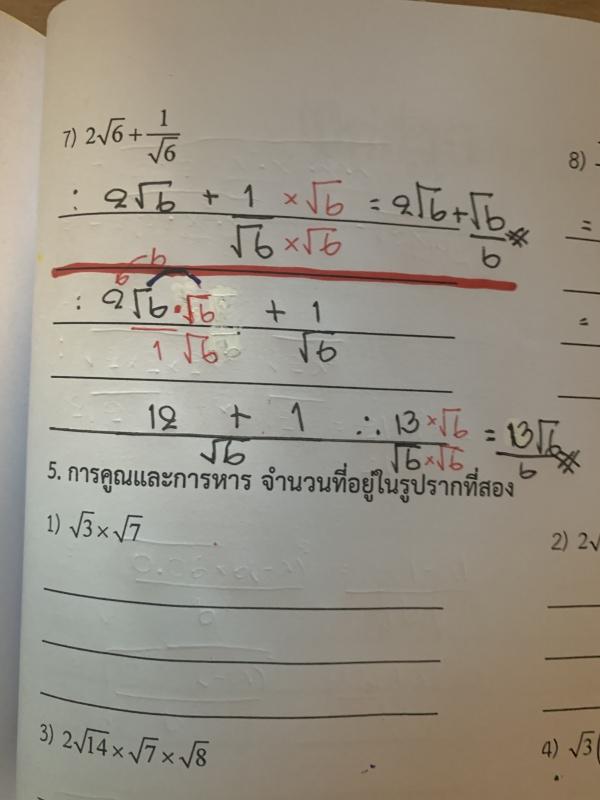 7) 2√6 + 1/√6
8)
: 2√6 + 1/√6 × √6/√6 = 2√6 + √6/6 #
=
6 6
: 2√6 · √6 / 1 √6 + 1/√6
=
12 + 1 / √6 ∴ 13/√6 × √6/√6 = 13√6/6 #
5. การคูณและการหาร จำนวนที่อยู่ในรูปรากที่สอง
1) √3 × √7
2) 2√
3) 2√14 × √7 × √8
4) √3(